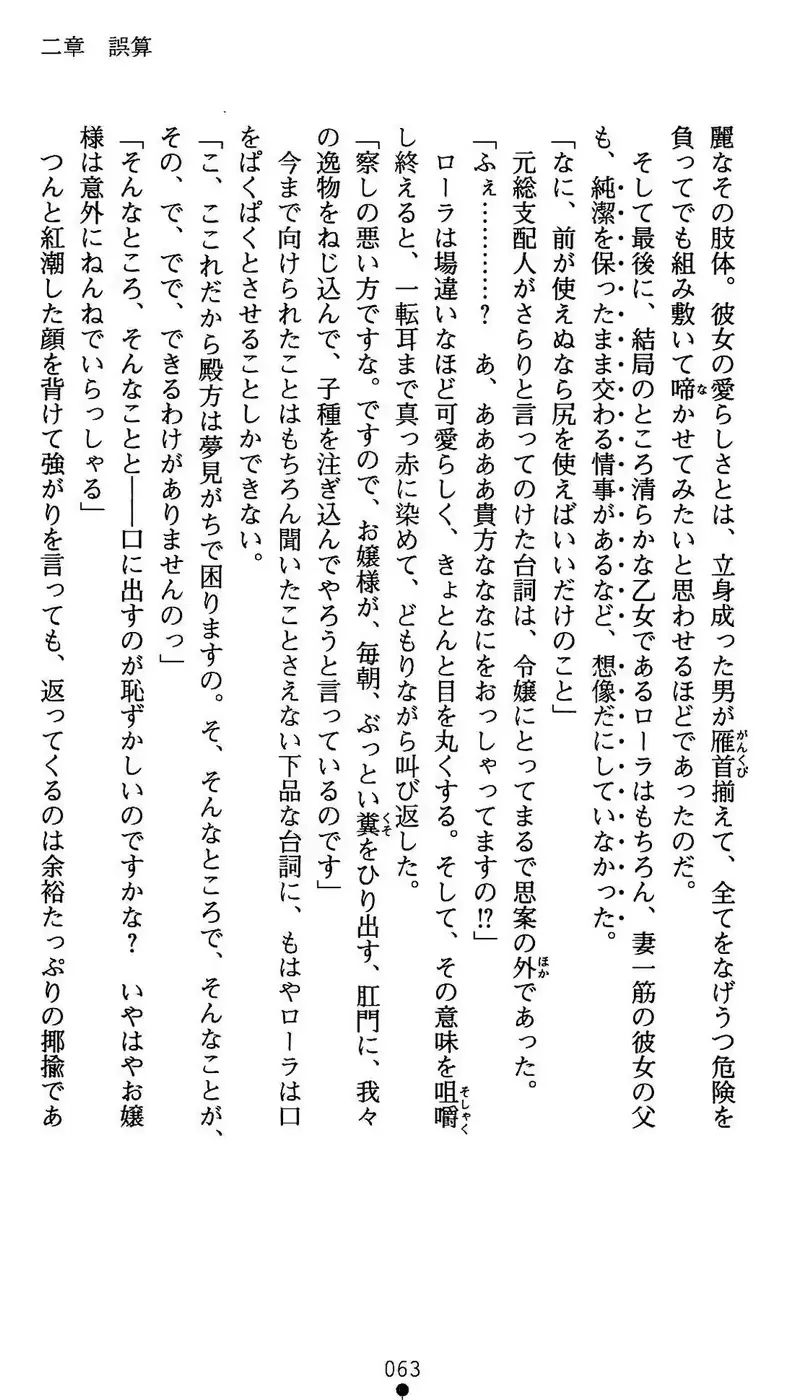 二章　誤算
麗なその肢体。彼女の愛らしさとは、立身成った男が雁首揃えて、全てをなげうつ危険を
がんくび
負ってでも組み敷いて啼かせてみたいと思わせるほどであったのだ。
な
そして最後に、結局のところ清らかな乙女であるローラはもちろん、妻一筋の彼女の父
も、純潔を保ったまま交わる情事があるなど、想像だにしていなかった。
「なに、前が使えぬなら尻を使えばいいだけのこと」
元総支配人がさらりと言ってのけた台詞は、令嬢にとってまるで思案の外であった。
ほか
「ふぇ…………？　あ、ああああ貴方なななにをおっしゃってますの!?」
ローラは場違いなほど可愛らしく、きょとんと目を丸くする。そして、その意味を咀嚼
そしゃく
し終えると、一転耳まで真っ赤に染めて、どもりながら叫び返した。
「察しの悪い方ですな。ですので、お嬢様が、毎朝、ぶっとい糞をひり出す、肛門に、我々
くそ
の逸物をねじ込んで、子種を注ぎ込んでやろうと言っているのです」
今まで向けられたことはもちろん聞いたことさえない下品な台詞に、もはやローラは口
をぱくぱくとさせることしかできない。
「こ、ここれだから殿方は夢見がちで困りますの。そ、そんなところで、そんなことが、
その、で、でで、できるわけがありませんのっ」
「そんなところ、そんなことと――口に出すのが恥ずかしいのですかな？　いやはやお嬢
様は意外にねんねでいらっしゃる」
つんと紅潮した顔を背けて強がりを言っても、返ってくるのは余裕たっぷりの揶揄であ
063